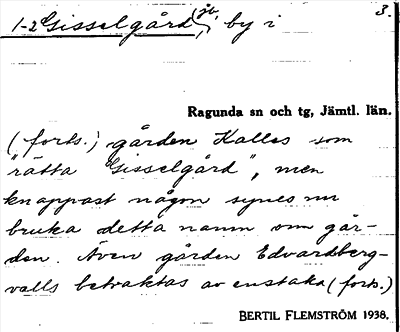 3.
1-2 Gisselgård, jb, by i
Ragunda sn och tg, Jämtl. län.
(forts.) gården Kalles som
"rätta Gisselgård", men
knappast någon synes nu
bruka detta namn om går-
den. Även gården Edvardberg-
valls betraktas av enstaka (forts.)
BERTIL FLEMSTRÖM 1938.